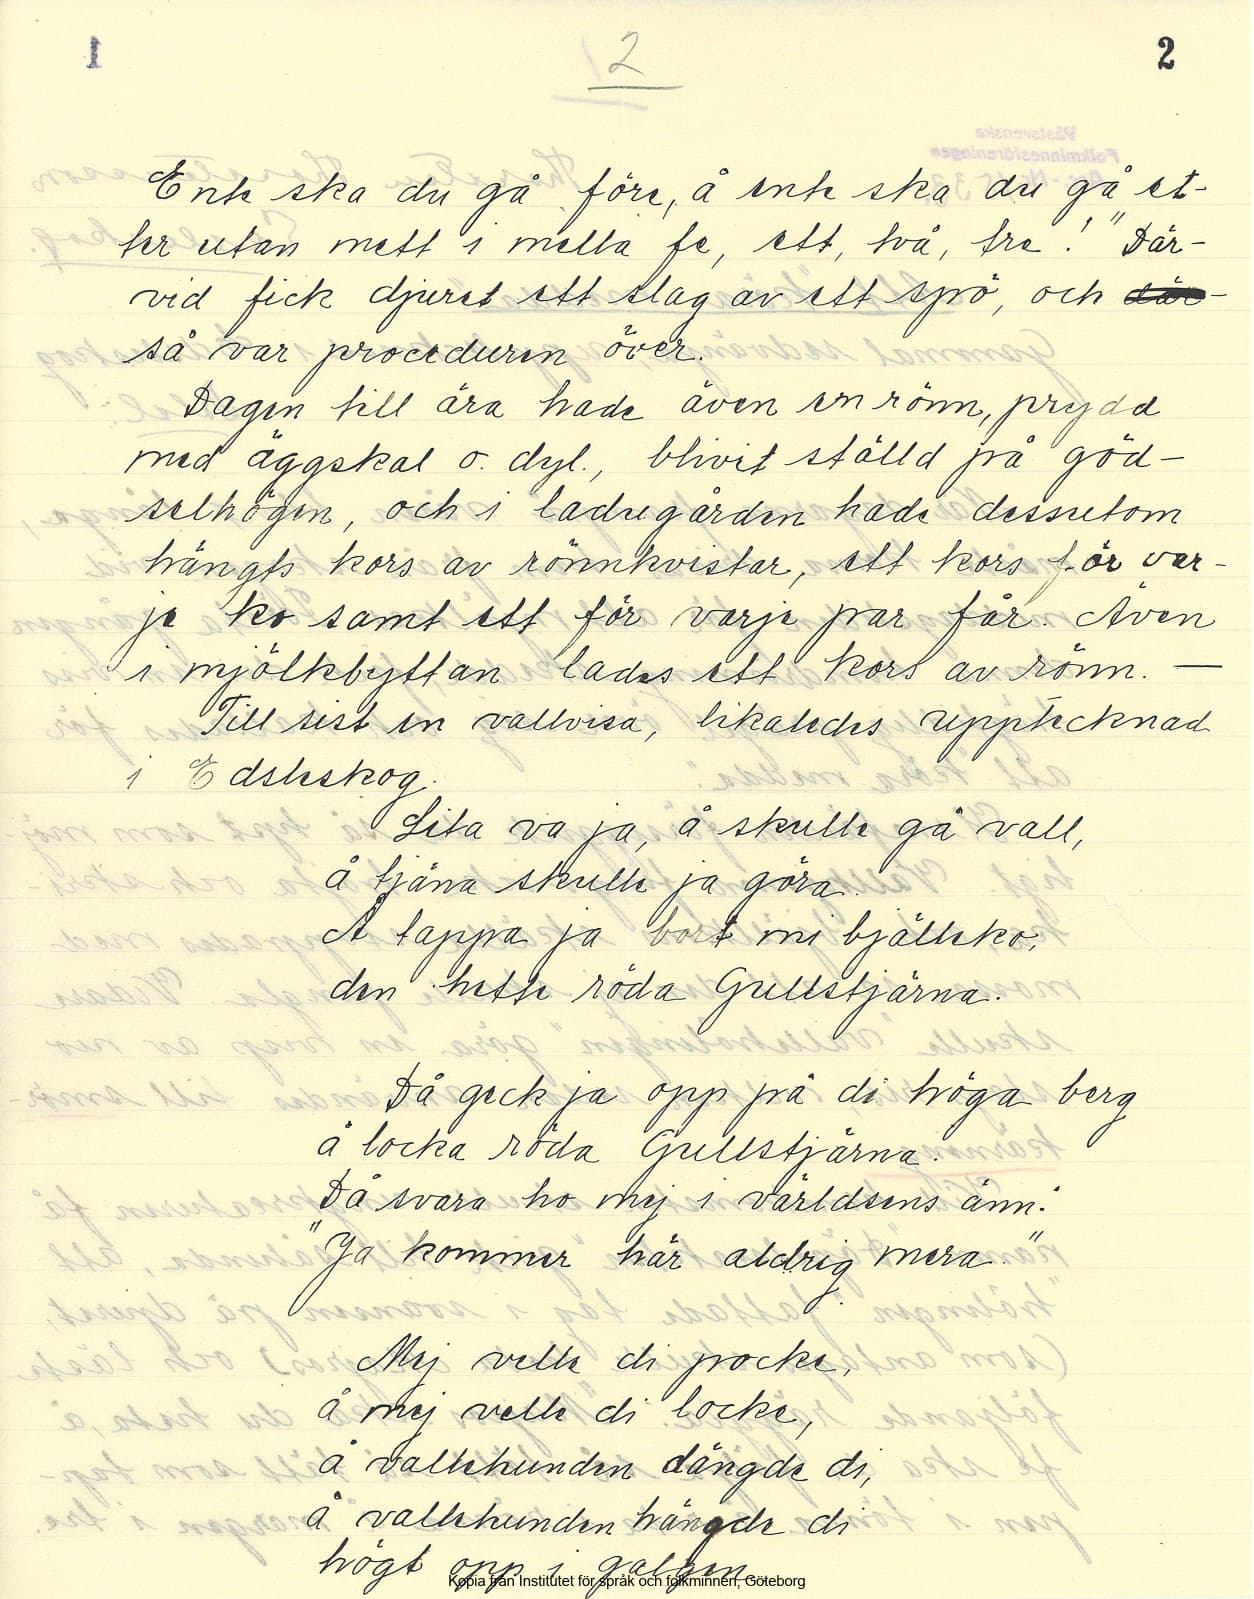 2
2
Enke ska du gå före, å enke ska du gå et-
ter utan mett i mella fe, ett, två, tre!" Där-
vid fick djuret ett slag av ett spö, och
så var proceduren över.
Dagen till ära hade även en rönn, prydd
med äggskal o. dyl., blivit ställd på göd-
selhögen, och i ladugården hade dessutom
hängts kors av rönnkvistar, ett kors för var-
je ko samt ett för varje par får. Även
i mjölkbyttan lades ett kors av rönn. —
Till sist en vallvisa, likaledes upptecknad
i Edsleskog.
Lita va ja, å skulle gå vall,
å tjäna skulle ja göra.
Å tappa ja bort mi bjälleko,
den hette röda Gullstjärna.
Då geck ja opp på di höga berg
å locka röda Gullstjärna.
Då svara ho mej i världsens änn:
"Ja kommer här aldrig mera."
Mej velle di pocke,
å mej velle di locke,
å vallehunden dängde di,
å vallehunden hängde di
högt opp i galgen
Kopia från Institutet för språk och folkminnen, Göteborg